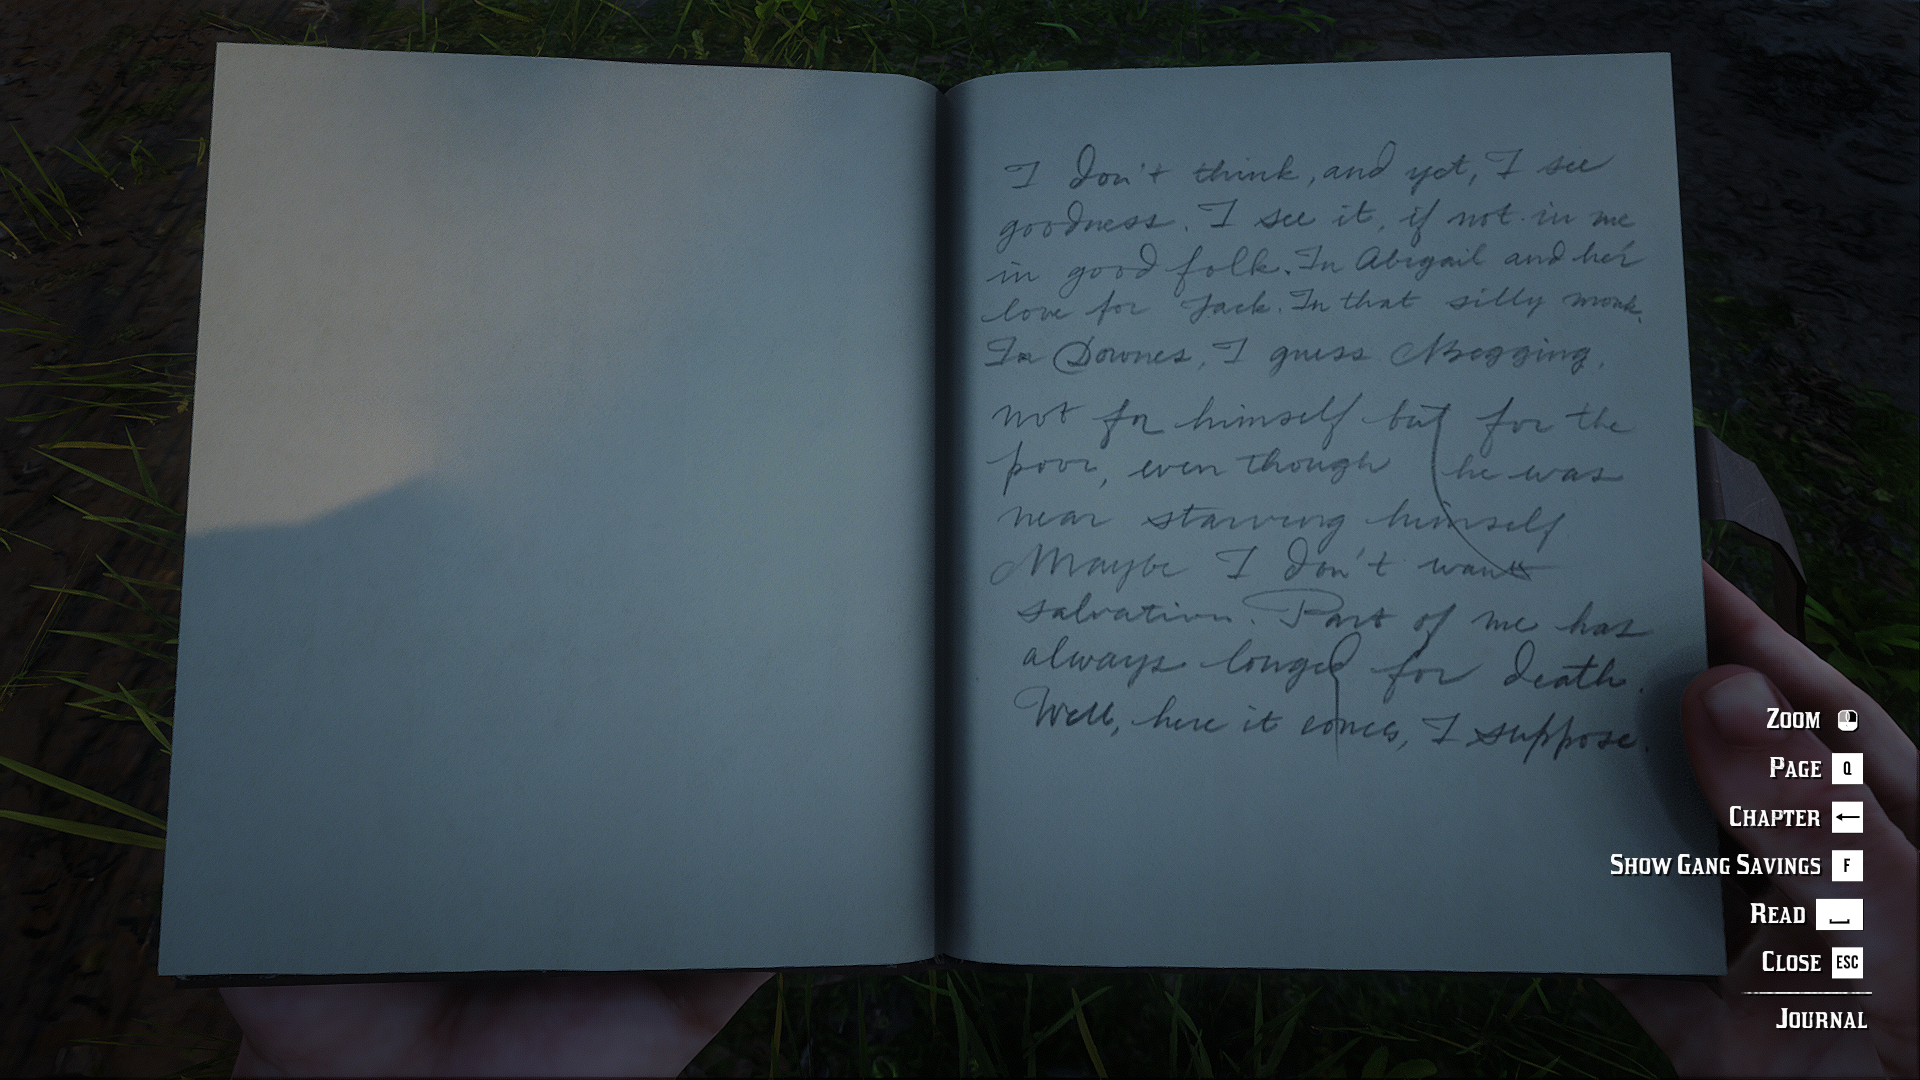 I don't think, and yet, I see
goodness. I see it, if not in me
in good folk. In Abigail and her
love for Jack. In that silly monk.
In Downes, I guess Begging,
not for himself but for the
poor, even though he was
near starving himself
Maybe I don't want
salvation. Part of me has
always longed for death.
Well, here it comes, I suppose.
ZOOM
PAGE Q
CHAPTER ←
SHOW GANG SAVINGS F
READ
CLOSE ESC
JOURNAL